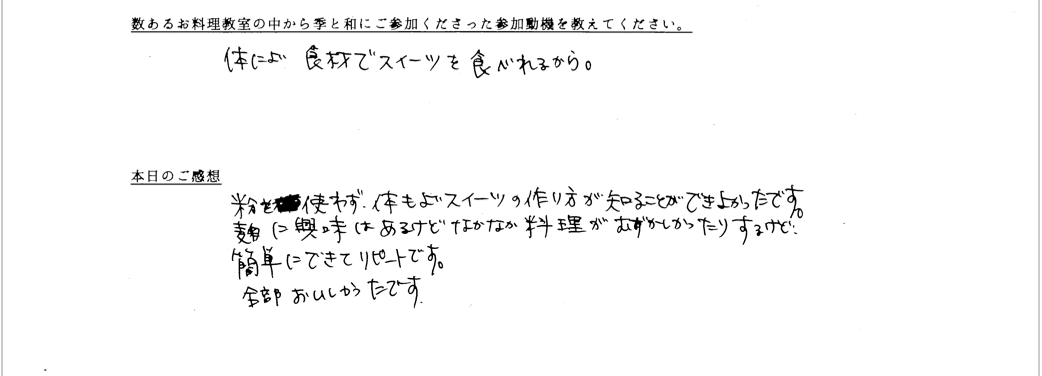 数あるお料理教室の中から季と和にご参加くださった参加動機を教えてください。
体によい食材でスイーツを食べれるから。
本日のご感想
粉を使わず、体もよいスイーツの作り方が知ることができよかったです。
麹に興味はあるけどなかなか料理がむずかしかったりするけど、
簡単にできてリピートです。
全部おいしかったです。